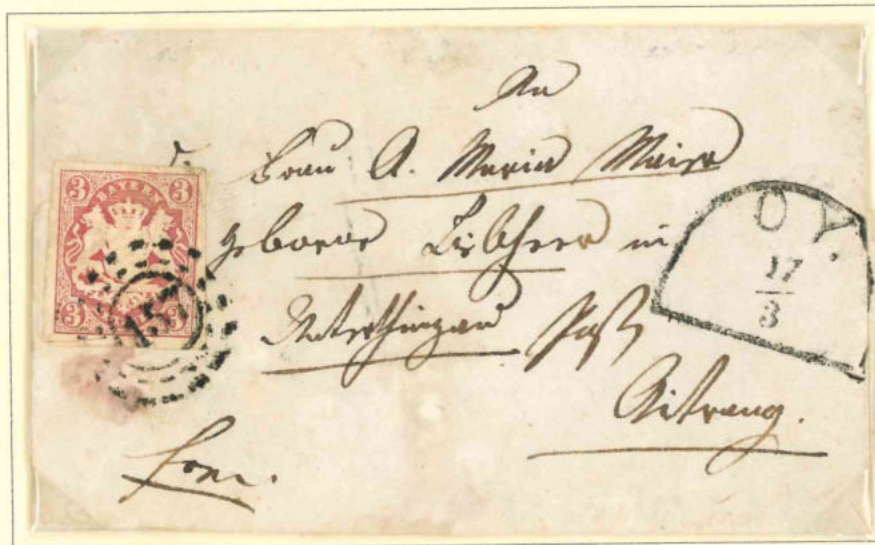 An
Frau A. Maria Maier
geborne in
Unterthingau Post
Aitrang.
Frei.
3 BAYERN 3
3 3
157
OY.
17
3